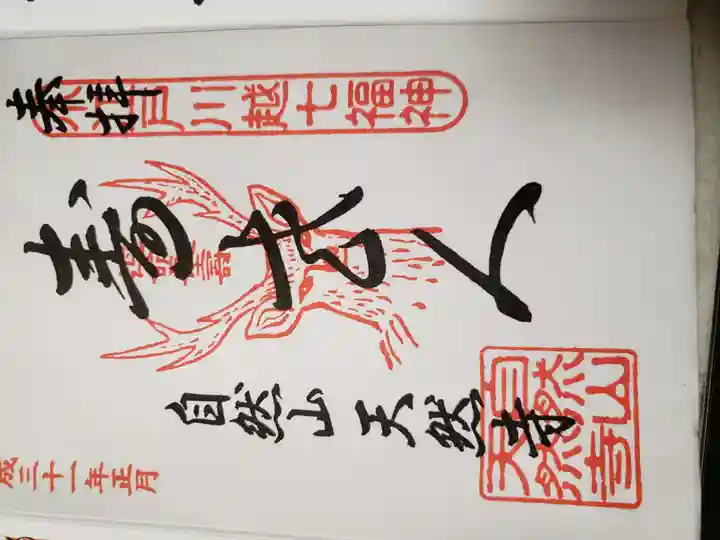 奉拝
小江戸川越七福神
寿老人
自然山 天然寺
自然山
天然寺
成三十一年正月